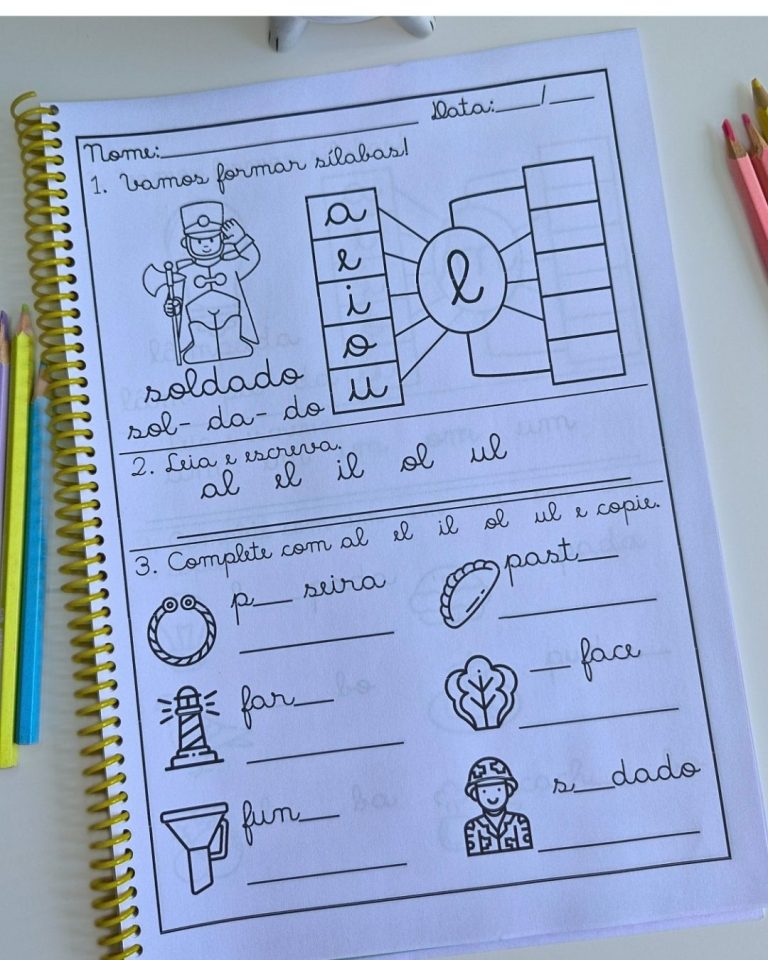 Nome:__________ Data:___/___
1. Vamos formar sílabas!
a
e
i
o
u
l
soldado
sol- da- do
2. Leia e escreva.
al el il ol ul
3. Complete com al el il ol ul e copie.
p__ seira
past__
far__
__ face
fun__
s__dado